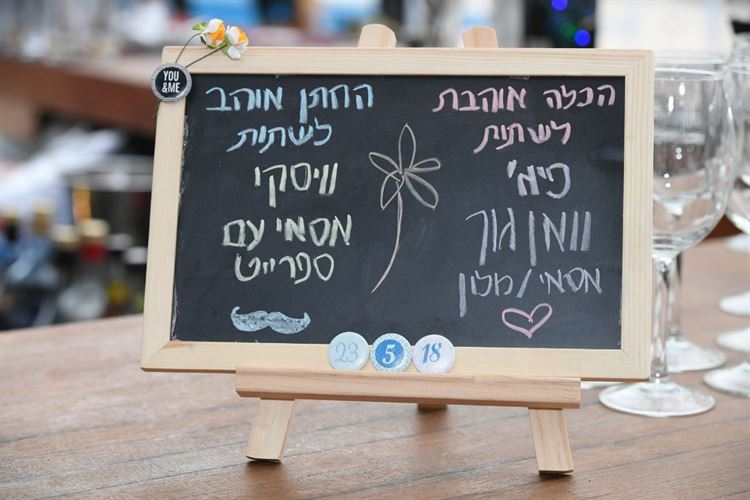 YOU
&ME
הכלה אוהבת
לשתות
פימ'
וומן גוך
מסאי/מלון
החתן אוהב
לשתות
וויסקי
מסאי עם
ספרייט
23 5 18